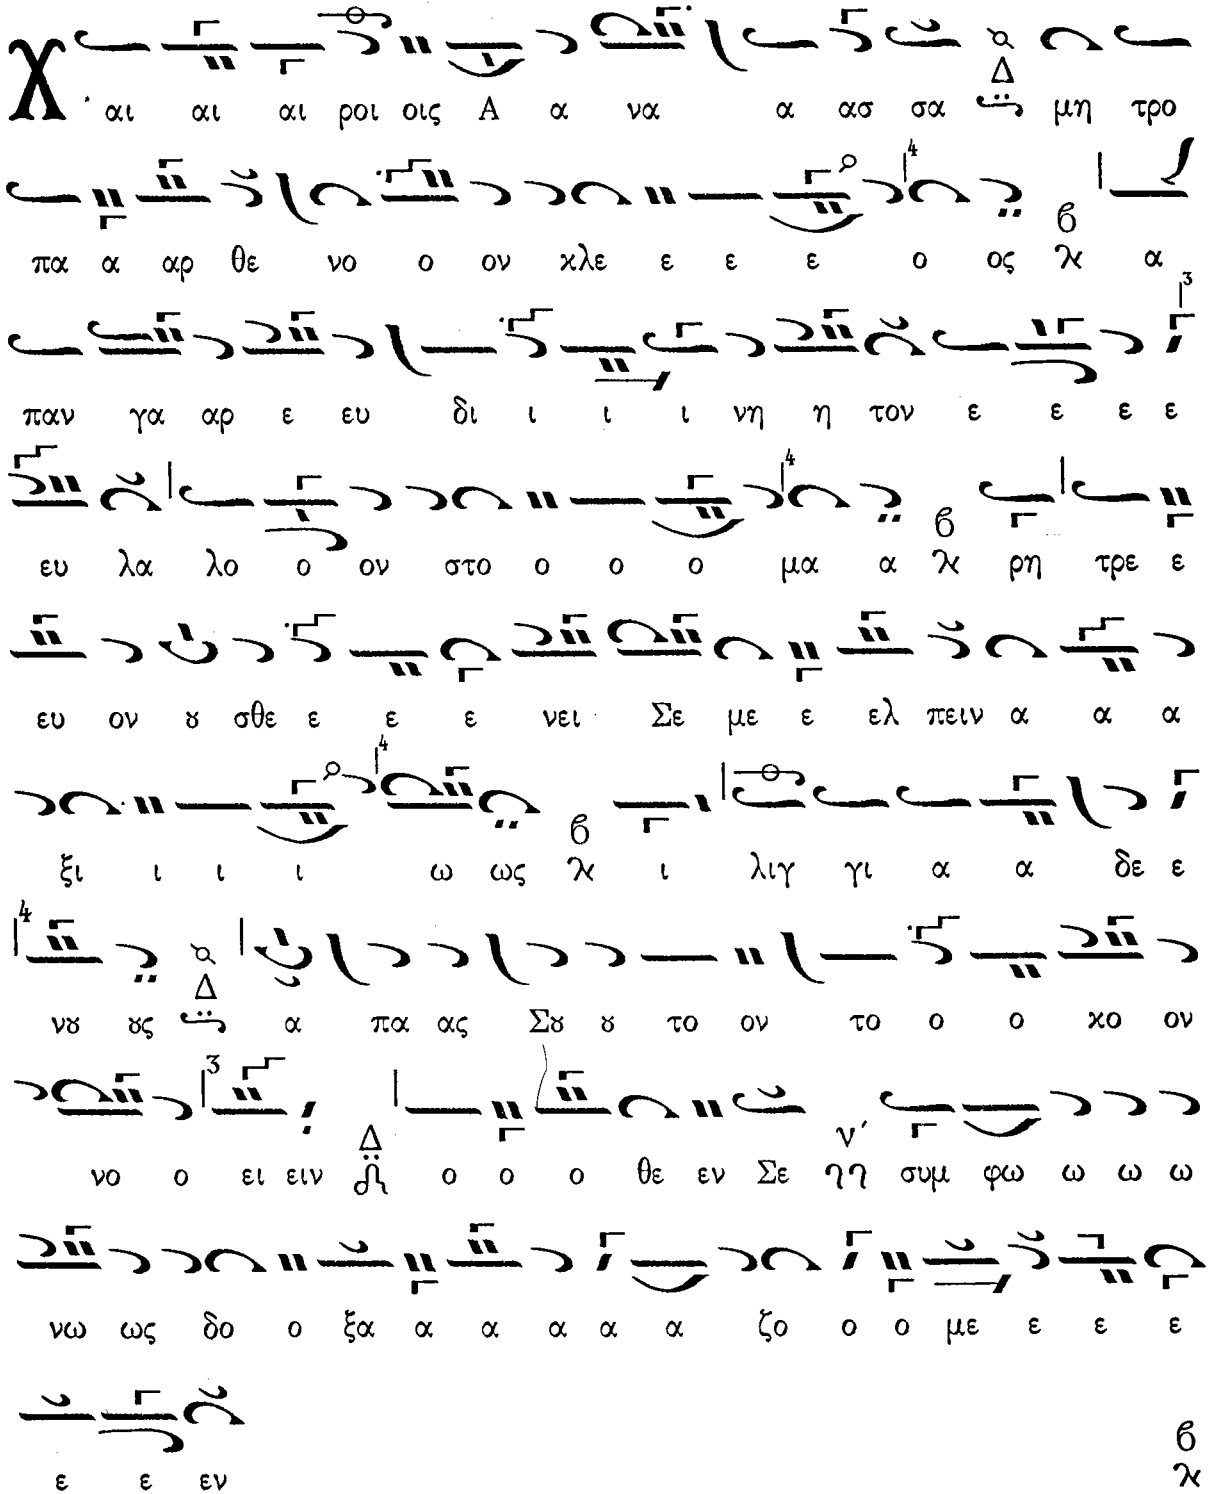 Χ αι αι αι ροι οις Α α να α ασ σα Δ μη τρο
πα α αρ θε νο ο ον κλε ε ε ε ο ος β λ α
παν γα αρ ε ευ δι ι ι ι νη η τον ε ε ε ε
ευ λα λο ο ον στο ο ο ο μα α β λ ρη τρε ε
ευ ον ȣ σθε ε ε ε νει Σε με ε ελ πειν α α α
ξι ι ι ι ω ως β λ ι λιγ γι α α δε ε
νȣ ȣς Δ α πα ας Σȣ ȣ το ον το ο ο κο ον
νο ο ει ειν Δ ο ο ο θε εν Σε ν΄ συμ φω ω ω ω
νω ως δο ο ξα α α α α α ζο ο ο με ε ε ε
ε ε εν β λ